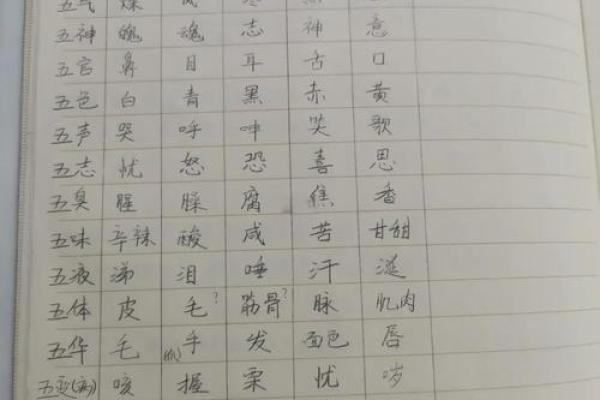 五气 燥 风 寒
五神 魄 魂 志 神 意
五官 鼻 目 耳 舌 口
五色 白 青 黑 赤 黄
五声 哭 呼 呻 笑 歌
五志 忧 怒 恐 喜 思
五臭 腥 臊 腐 焦 香
五味 辛辣 酸 咸 苦 甘甜
五液 涕 泪 唾 汗 涎
五体 皮 毛? 筋骨? 脉 肌肉
五华 毛 手 发 面色 唇
五变(病) 咳 握 栗 忧 哕